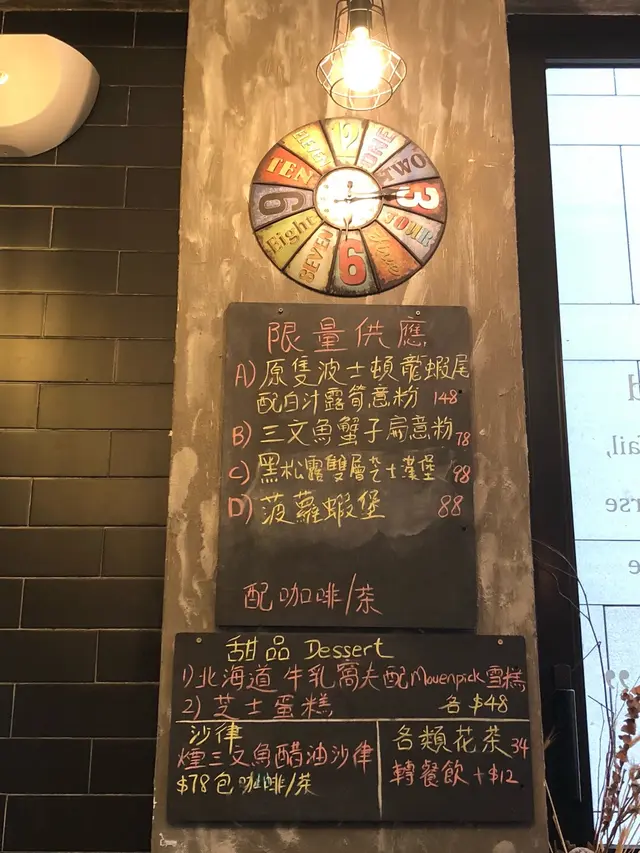 12
ONE
TWO
3
FOUR
Five
6
SEVEN
Eight
9
TEN
ELEVEN
限量供應
A) 原隻波士頓龍蝦尾
配白汁露筍意粉 148
B) 三文魚蟹子扁意粉 78
C) 黑松露雙層芝士漢堡 98
D) 菠蘿蝦堡 88
配咖啡/茶
甜品 Dessert
1) 北海道牛乳窩夫配Movenpick雪糕
2) 芝士蛋糕 各 $48
沙律
煙三文魚醋油沙律
$78包咖啡/茶
各類花茶 34
轉餐飲 +$12